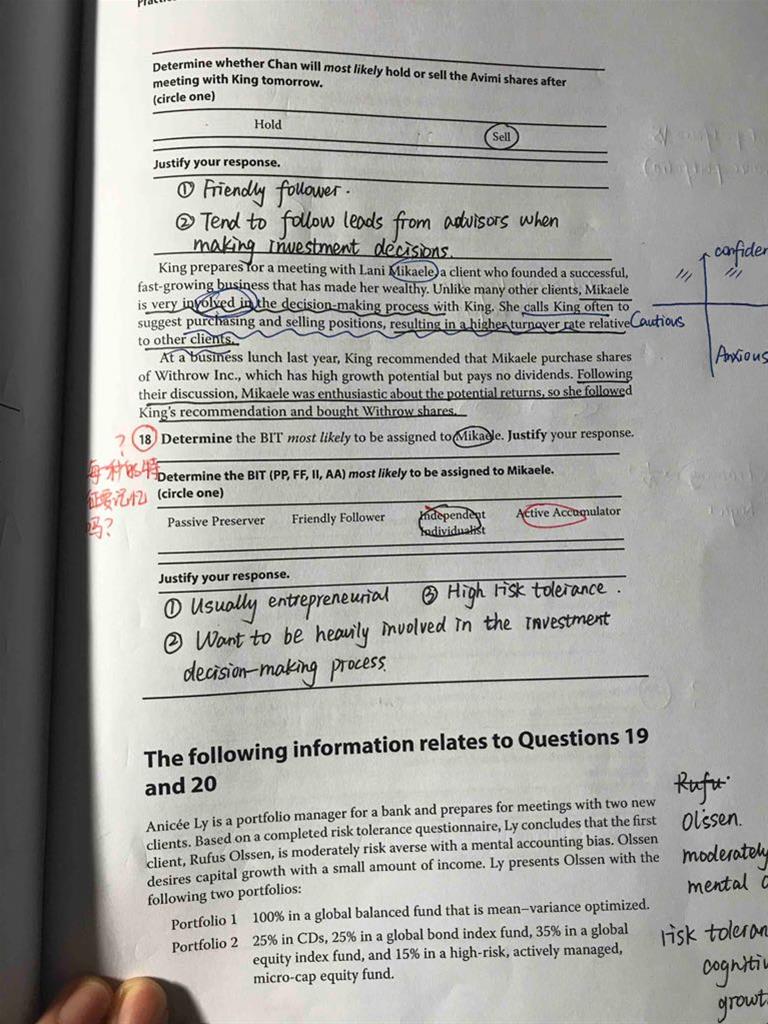 Determine whether Chan will most likely hold or sell the Avimi shares after
meeting with King tomorrow.
(circle one)
Hold Sell
Justify your response.
① Friendly follower.
② Tend to follow leads from advisors when
making investment decisions.
King prepares for a meeting with Lani Mikaele, a client who founded a successful,
fast-growing business that has made her wealthy. Unlike many other clients, Mikaele
is very involved in the decision-making process with King. She calls King often to
suggest purchasing and selling positions, resulting in a higher turnover rate relative
to other clients.
confiden
Cautious
Anxious
At a business lunch last year, King recommended that Mikaele purchase shares
of Withrow Inc., which has high growth potential but pays no dividends. Following
their discussion, Mikaele was enthusiastic about the potential returns, so she followed
King's recommendation and bought Withrow shares.
18 Determine the BIT most likely to be assigned to Mikaele. Justify your response.
?
每种的特
征要记忆
吗?
Determine the BIT (PP, FF, II, AA) most likely to be assigned to Mikaele.
(circle one)
Passive Preserver Friendly Follower Independent Active Accumulator
Individualist
Justify your response.
① Usually entrepreneurial ③ High risk tolerance.
② Want to be heavily involved in the investment
decision-making process.
The following information relates to Questions 19
and 20
Anicée Ly is a portfolio manager for a bank and prepares for meetings with two new
clients. Based on a completed risk tolerance questionnaire, Ly concludes that the first
client, Rufus Olssen, is moderately risk averse with a mental accounting bias. Olssen
desires capital growth with a small amount of income. Ly presents Olssen with the
following two portfolios:
Portfolio 1 100% in a global balanced fund that is mean–variance optimized.
Portfolio 2 25% in CDs, 25% in a global bond index fund, 35% in a global
equity index fund, and 15% in a high-risk, actively managed,
micro-cap equity fund.
Rufu
Olssen.
moderately
mental
risk toleran
cogniti
growt